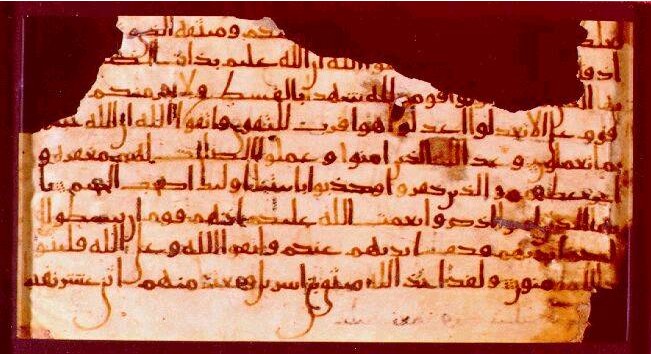 وميثقه الذي
الله ان الله عليم بذات
لله شهدا بالقسط ولا يجرمنكم
قوم على الا تعدلوا اعدلوا هو اقرب للتقوى واتقوا الله ان الله
بما تعملون وعد الله الذين امنوا وعملوا الصلحت لهم مغفرة و
اجر عظيم والذين كفروا وكذبوا بايتنا اوليك اصحب الجحيم يا
يها الذين اذكروا نعمت الله عليكم اذ هم قوم ان يبسطوا ا
ليكم ايديهم فكف ايديهم عنكم واتقوا الله وعلى الله فليتو
كل المومنون ولقد اخذ الله ميثق بني اسريل وبعثنا منهم اثني عشر نقيبا